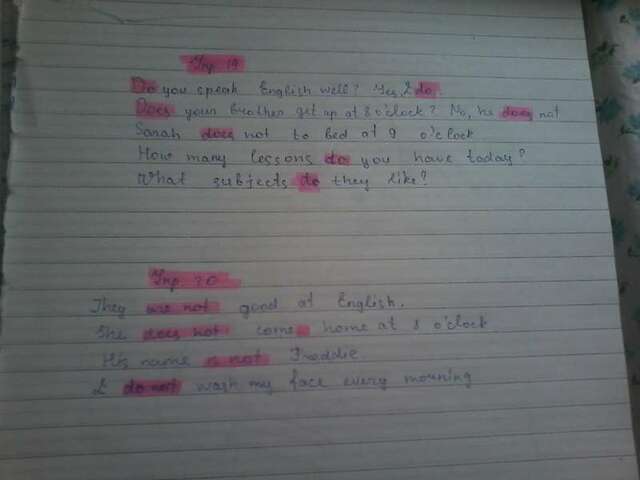 Упр 19
Do you speak English well? Yes, I do.
Does your brother get up at 8 o'clock? No, he does not
Sarah does not to bed at 9 o'clock
How many lessons do you have today?
What subjects do they like?
Упр 20
They are not good at English.
She does not come home at 8 o'clock
His name is not Freddie
I do not wash my face every mourning